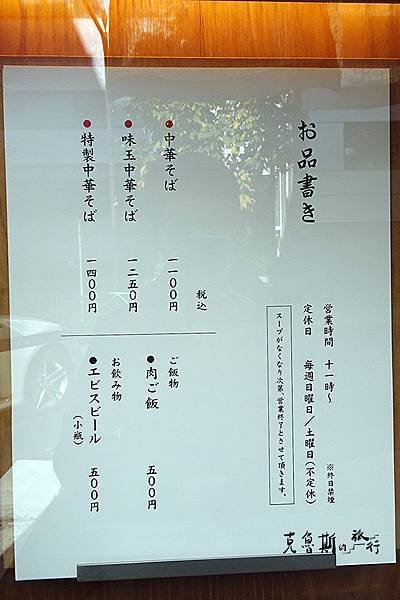 お品書き
営業時間　十一時〜
※終日禁煙
定休日　毎週日曜日／土曜日(不定休)
スープがなくなり次第、営業終了とさせて頂きます。
税込
●中華そば　一一〇〇円
●味玉中華そば　一二五〇円
●特製中華そば　一四〇〇円
ご飯物
●肉ご飯　五〇〇円
お飲み物
●エビスビール(小瓶)　五〇〇円
克魯斯的旅行